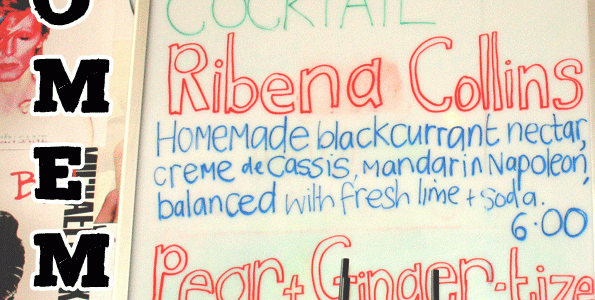 COCKTAIL
Ribena Collins
Homemade blackcurrant nectar,
creme de Cassis, mandarin Napoleon,
balanced with fresh lime + soda.
6.00
Pear + Ginger-tize
O
M
E
M